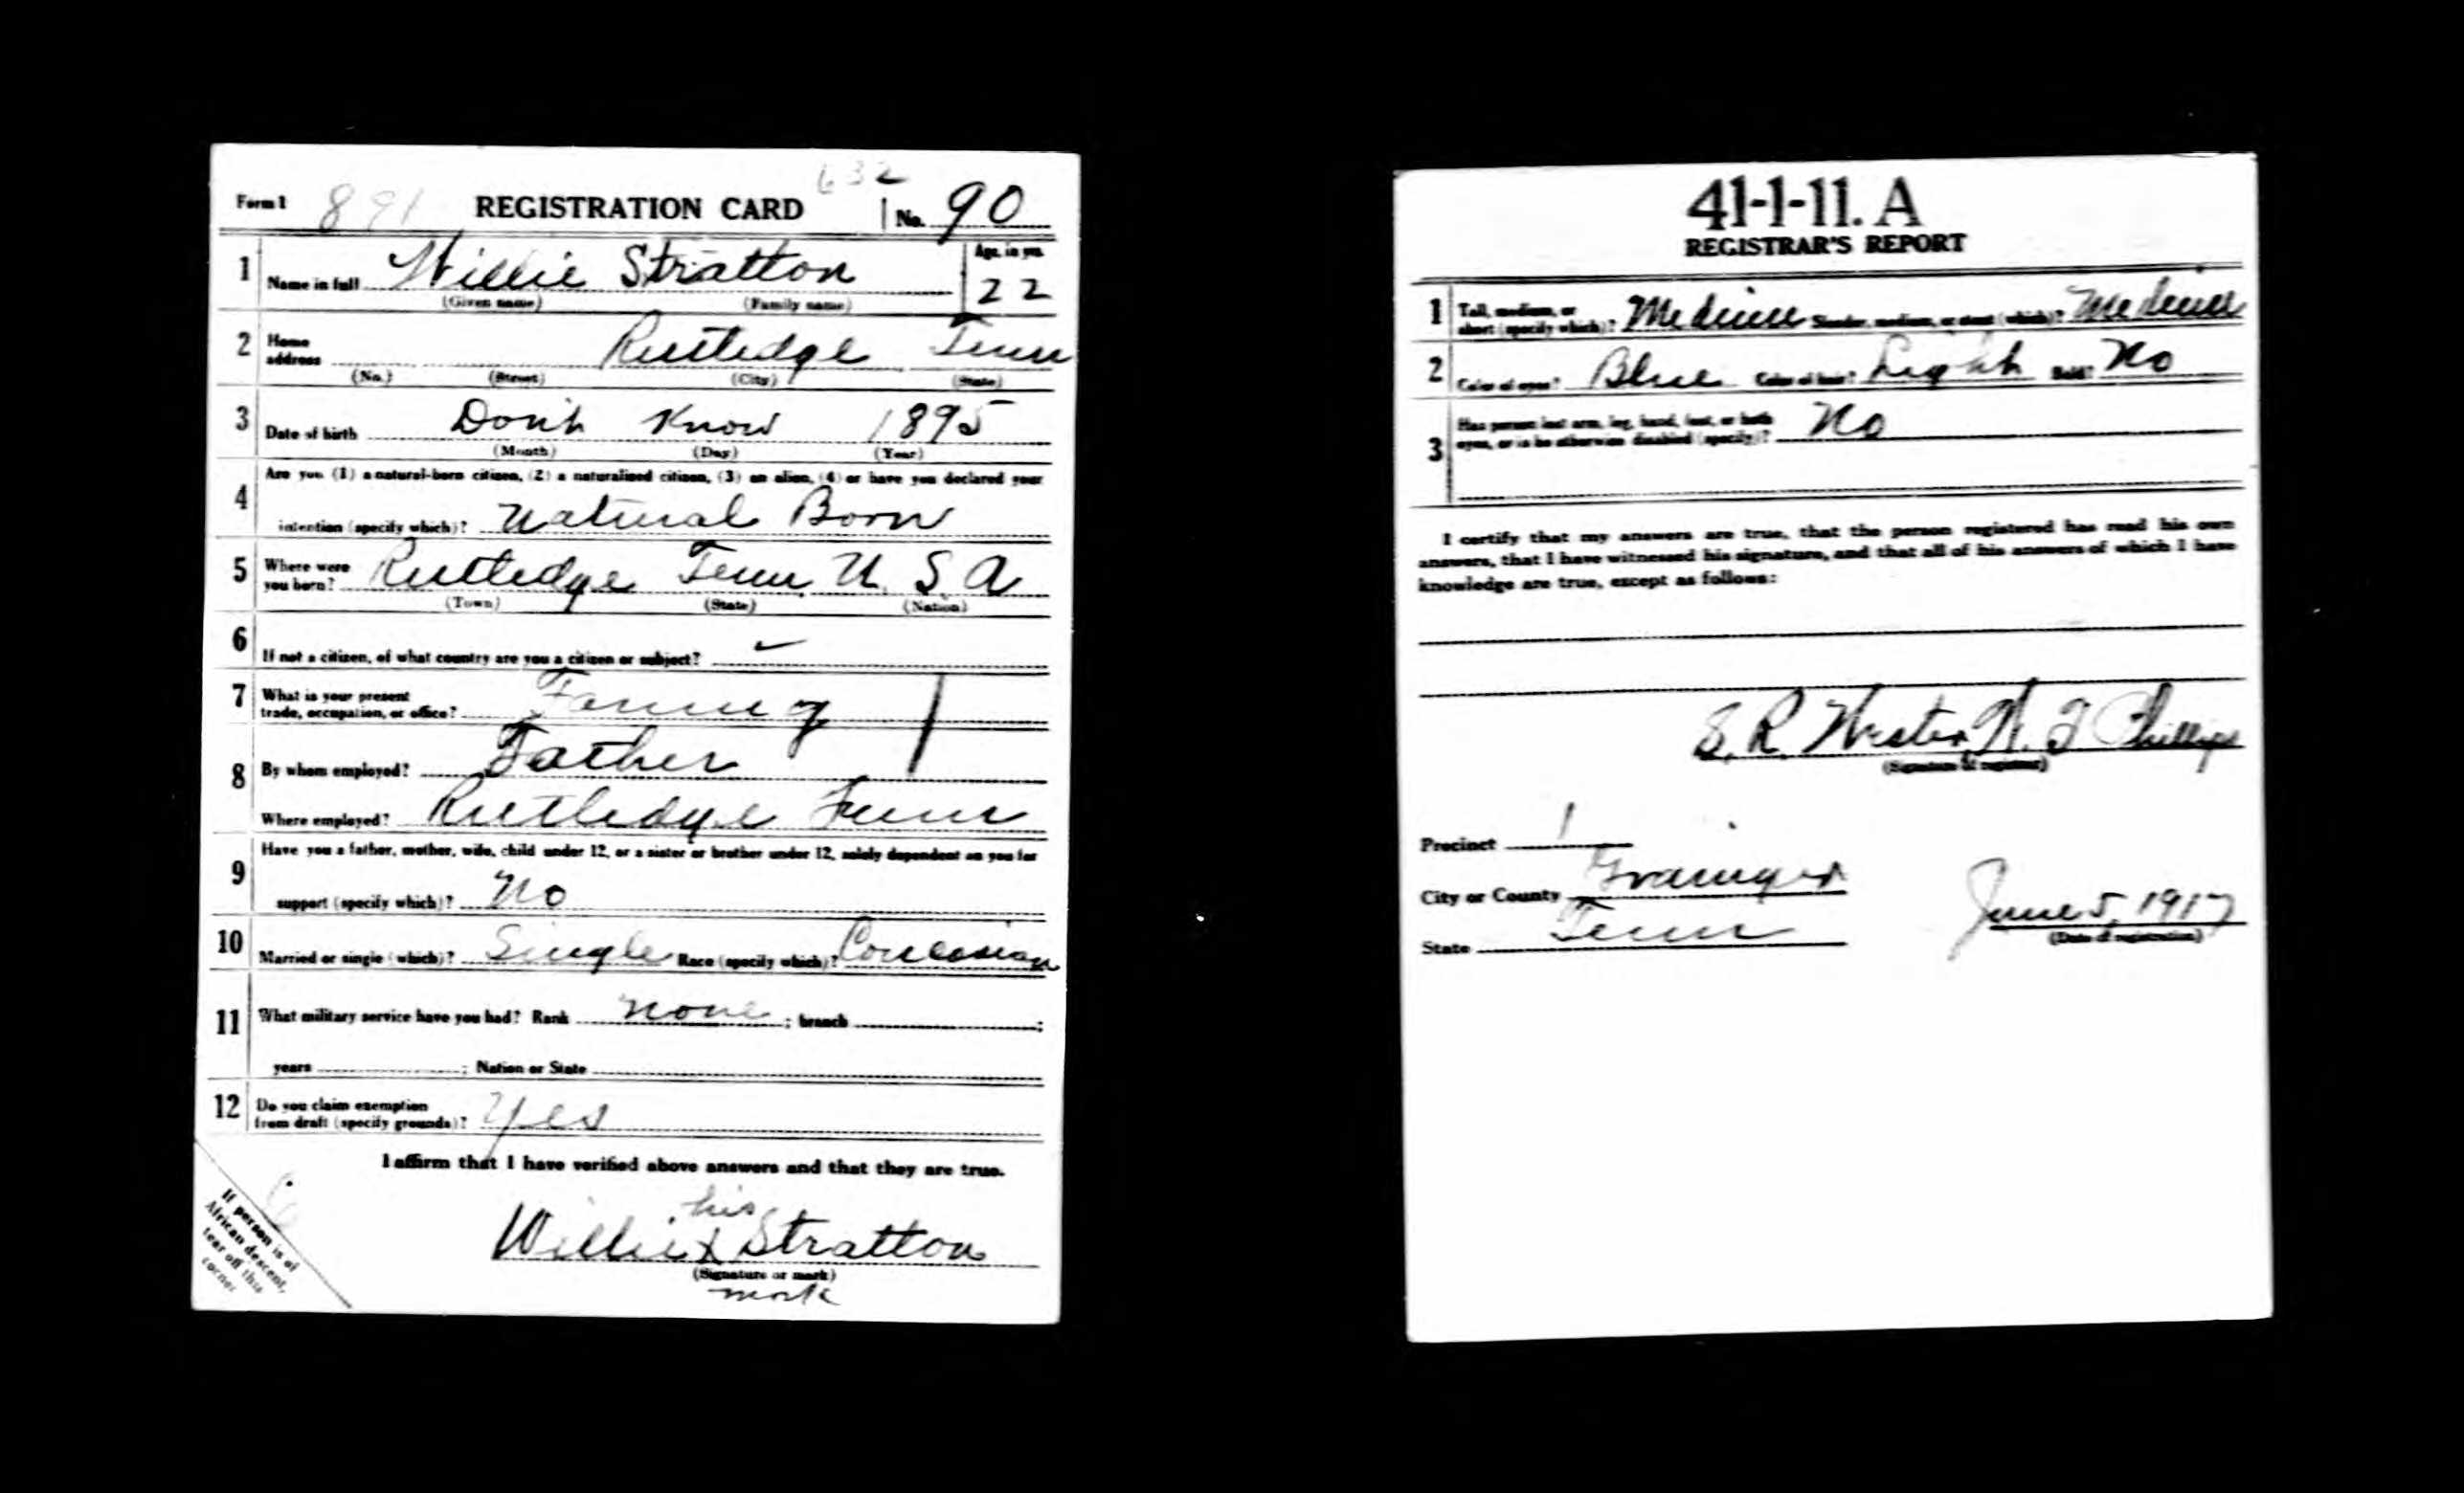 632
Form 1 891 REGISTRATION CARD No. 90
1 Name in full Willie Stratton Age, in yrs. 22
(Given name) (Family name)
2 Home address Rutledge Tenn
(No.) (Street) (City) (State)
3 Date of birth Don't Know 1895
(Month) (Day) (Year)
4 Are you (1) a natural-born citizen, (2) a naturalized citizen, (3) an alien, (4) or have you declared your
intention (specify which)? Natural Born
5 Where were you born? Rutledge Tenn U. S. A
(Town) (State) (Nation)
6 If not a citizen, of what country are you a citizen or subject?
7 What is your present
trade, occupation, or office? Farming
8 By whom employed? Father
Where employed? Rutledge Tenn
9 Have you a father, mother, wife, child under 12, or a sister or brother under 12, solely dependent on you for
support (specify which)? No
10 Married or single (which)? Single Race (specify which)? Concasian
11 What military service have you had? Rank None ; branch ;
years ; Nation or State
12 Do you claim exemption
from draft (specify grounds)? Yes
I affirm that I have verified above answers and that they are true.
his
Willie X Stratton
(Signature or mark)
mark
If person is of
African descent,
tear off this
corner
41-1-11. A
REGISTRAR'S REPORT
1 Tall, medium, or
short (specify which)? Medium Slender, medium, or stout (which)? Medium
2 Color of eyes? Blue Color of hair? Light Bald? No
3 Has person lost arm, leg, hand, foot, or both
eyes, or is he otherwise disabled (specify)? No
I certify that my answers are true, that the person registered has read his own
answers, that I have witnessed his signature, and that all of his answers of which I have
knowledge are true, except as follows:
S. R. Wester, N. T. Phillips
(Signature of registrar)
Precinct 1
City or County Grainger
State Tenn
June 5, 1917
(Date of registration)